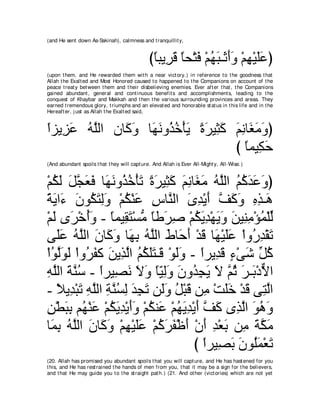 (and He sent down As-Sakinah), calmness and tranquillity,
﴿عَلَيْهِمْ وَأَثَـبَهُمْ فَتْحاً قَرِيباً﴾
(upon them, and He rewarded them with a near victory.) in reference to the goodness that
Allah the Exalted and Most Honored caused to happened to the Companions on account of the
peace treaty between them and their disbelieving enemies. Ever after that, the Companions
gained abundant, general and continuous benefits and accomplishments, leading to the
conquest of Khaybar and Makkah and then the various surrounding provinces and areas. They
earned tremendous glory, triumphs and an elevated and honorable status in this life and in the
Hereafter, just as Allah the Exalted said,
﴿وَمَغَانِمَ كَثِيرَةً يَأْخُذُونَهَا وَكَانَ اللَّهُ عَزِيزاً
حَكِيماً ﴾
(And abundant spoils that they will capture. And Allah is Ever All-Mighty, All-Wise.)
﴿وَعَدَكُمُ اللَّهُ مَغَانِمَ كَثِيرَةً تَأْخُذُونَهَا فَعَجَّلَ لَكُمْ
هَـذِهِ وَكَفَّ أَيْدِىَ النَّاسِ عَنْكُمْ وَلِتَكُونَ ءَايَةً
لِّلْمُؤْمِنِينَ وَيَهْدِيَكُمْ صِرَطاً مُّسْتَقِيماً - وَأُخْرَى لَمْ
تَقْدِرُواْ عَلَيْهَا قَدْ أَحَاطَ اللَّهُ بِهَا وَكَانَ اللَّهُ عَلَى
كُلِّ شَىْءٍ قَدِيراً - وَلَوْ قَـتَلَكُمُ الَّذِينَ كَفَرُواْ لَوَلَّوُاْ
الاٌّدْبَـرَ ثُمَّ لاَ يَجِدُونَ وَلِيّاً وَلاَ نَصِيراً - سُنَّةَ اللَّهِ
الَّتِى قَدْ خَلَتْ مِن قَبْلُ وَلَن تَجِدَ لِسُنَّةِ اللَّهِ تَبْدِيلاً -
وَهُوَ الَّذِى كَفَّ أَيْدِيَهُمْ عَنكُمْ وَأَيْدِيَكُمْ عَنْهُم بِبَطْنِ
مَكَّةَ مِن بَعْدِ أَنْ أَظْفَرَكُمْ عَلَيْهِمْ وَكَانَ اللَّهُ بِمَا
تَعْمَلُونَ بَصِيراً ﴾
(20. Allah has promised you abundant spoils that you will capture, and He has hastened for you
this, and He has restrained the hands of men from you, that it may be a sign for the believers,
and that He may guide you to the straight path.) (21. And other (victories) which are not yet